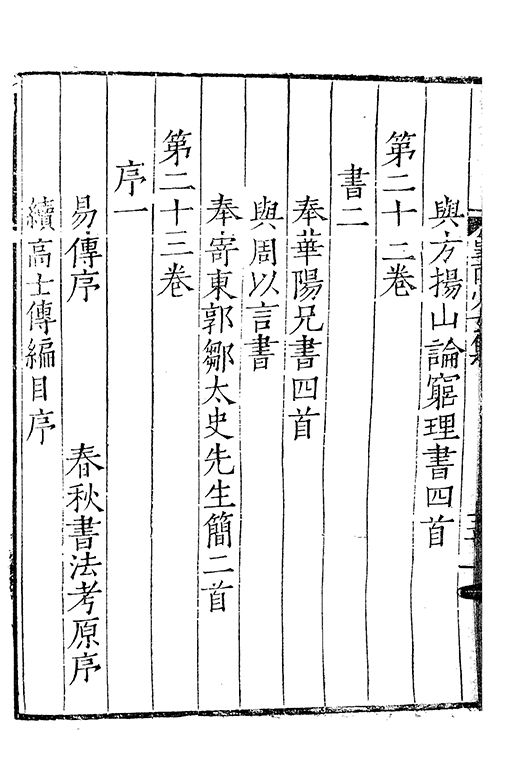 與方揚山論窮理書四首
第二十二卷
書二
奉華陽兄書四首
與周以言書
奉寄東郭鄒太史先生簡二首
第二十三卷
序一
易傳序　春秋書法考原序
續高士傳編目序